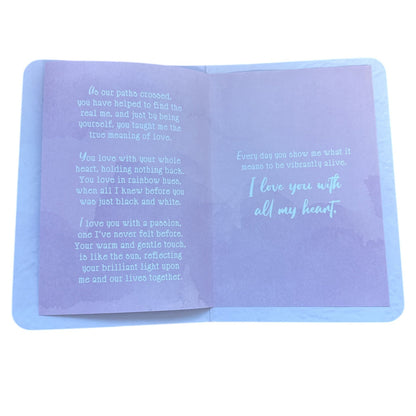 As our paths crossed,
you have helped to find the
real me, and just by being
yourself, you taught me the
true meaning of love.
You love with your whole
heart, holding nothing back.
You love in rainbow hues,
when all I knew before you
was just black and white.
I love you with a passion,
one I've never felt before.
Your warm and gentle touch,
is like the sun, reflecting
your brilliant light upon
me and our lives together.
Every day you show me what it
means to be vibrantly alive.
I love you with
all my heart.